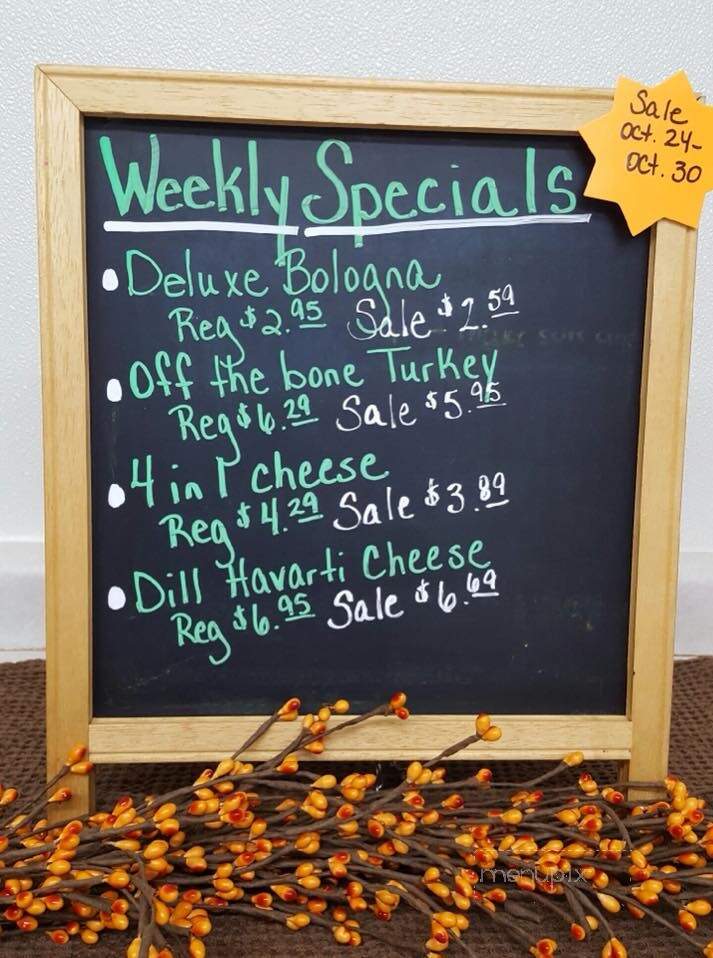 Weekly Specials
Sale
Oct. 24-
Oct. 30
• Deluxe Bologna
Reg $2.95 Sale $2.59
• Off the bone Turkey
Reg $6.29 Sale $5.95
• 4 in 1 cheese
Reg $4.29 Sale $3.89
• Dill Havarti Cheese
Reg $6.95 Sale $6.69
menupix